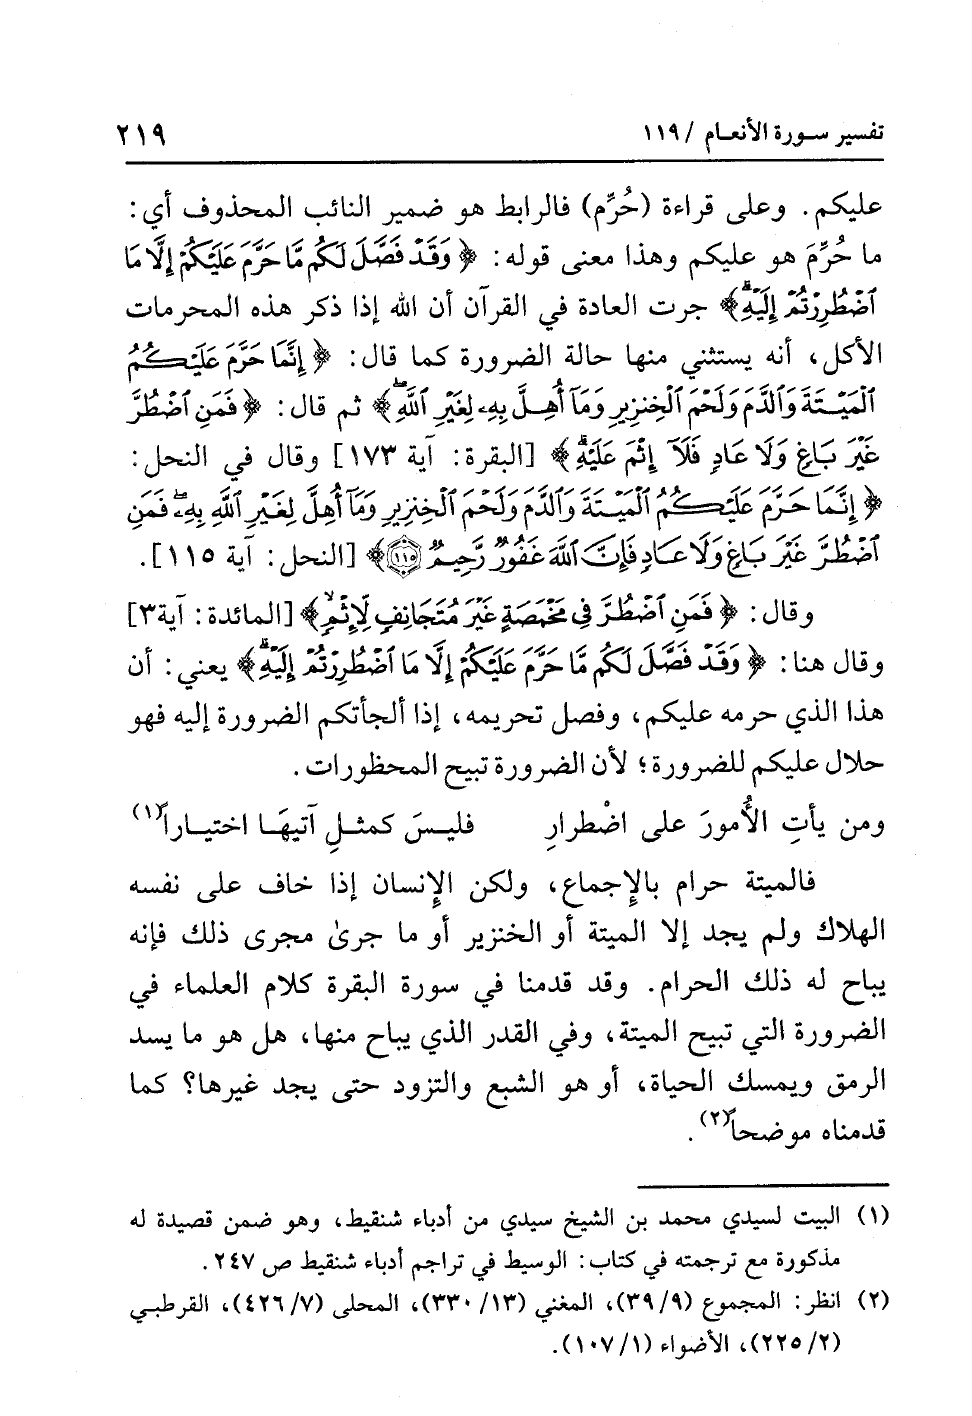 تفسير سورة الأنعام / ١١٩ ٢١٩
عليكم. وعلى قراءة (حُرِّم) فالرابط هو ضمير النائب المحذوف أي:
ما حُرِّمَ هو عليكم وهذا معنى قوله: ﴿وَقَدْ فَصَّلَ لَكُم مَّا حَرَّمَ عَلَيْكُمْ إِلَّا مَا
ٱضْطُرِرْتُمْ إِلَيْهِۗ﴾ جرت العادة في القرآن أن الله إذا ذكر هذه المحرمات
الأكل، أنه يستثني منها حالة الضرورة كما قال: ﴿إِنَّمَا حَرَّمَ عَلَيْكُمُ
ٱلْمَيْتَةَ وَٱلدَّمَ وَلَحْمَ ٱلْخِنزِيرِ وَمَآ أُهِلَّ بِهِۦ لِغَيْرِ ٱللَّهِۖ﴾ ثم قال: ﴿فَمَنِ ٱضْطُرَّ
غَيْرَ بَاغٍ وَلَا عَادٍ فَلَآ إِثْمَ عَلَيْهِۚ﴾ [البقرة: آية ١٧٣] وقال في النحل:
﴿إِنَّمَا حَرَّمَ عَلَيْكُمُ ٱلْمَيْتَةَ وَٱلدَّمَ وَلَحْمَ ٱلْخِنزِيرِ وَمَآ أُهِلَّ لِغَيْرِ ٱللَّهِ بِهِۦۖ فَمَنِ
ٱضْطُرَّ غَيْرَ بَاغٍ وَلَا عَادٍ فَإِنَّ ٱللَّهَ غَفُورٌ رَّحِيمٌ ﴿١١٥﴾﴾ [النحل: آية ١١٥].
وقال: ﴿فَمَنِ ٱضْطُرَّ فِى مَخْمَصَةٍ غَيْرَ مُتَجَانِفٍ لِّإِثْمٍۙ﴾ [المائدة: آية٣]
وقال هنا: ﴿وَقَدْ فَصَّلَ لَكُم مَّا حَرَّمَ عَلَيْكُمْ إِلَّا مَا ٱضْطُرِرْتُمْ إِلَيْهِۗ﴾ يعني: أن
هذا الذي حرمه عليكم، وفصل تحريمه، إذا ألجأتكم الضرورة إليه فهو
حلال عليكم للضرورة؛ لأن الضرورة تبيح المحظورات.
ومن يأتِ الأُمورَ على اضْطرارِ فليسَ كمثلِ آتيهَا اختياراً(١)
فالميتة حرام بالإجماع، ولكن الإنسان إذا خاف على نفسه
الهلاك ولم يجد إلا الميتة أو الخنزير أو ما جرىٰ مجرى ذلك فإنه
يباح له ذلك الحرام. وقد قدمنا في سورة البقرة كلام العلماء في
الضرورة التي تبيح الميتة، وفي القدر الذي يباح منها، هل هو ما يسد
الرمق ويمسك الحياة، أو هو الشبع والتزود حتى يجد غيرها؟ كما
قدمناه موضحاً(٢).
(١) البيت لسيدي محمد بن الشيخ سيدي من أدباء شنقيط، وهو ضمن قصيدة له
مذكورة مع ترجمته في كتاب: الوسيط في تراجم أدباء شنقيط ص ٢٤٧.
(٢) انظر: المجموع (٣٩/٩)، المغني (٣٣٠/١٣)، المحلى (٤٢٦/٧)، القرطبي
(٢٢٥/٢)، الأضواء (١٠٧/١).